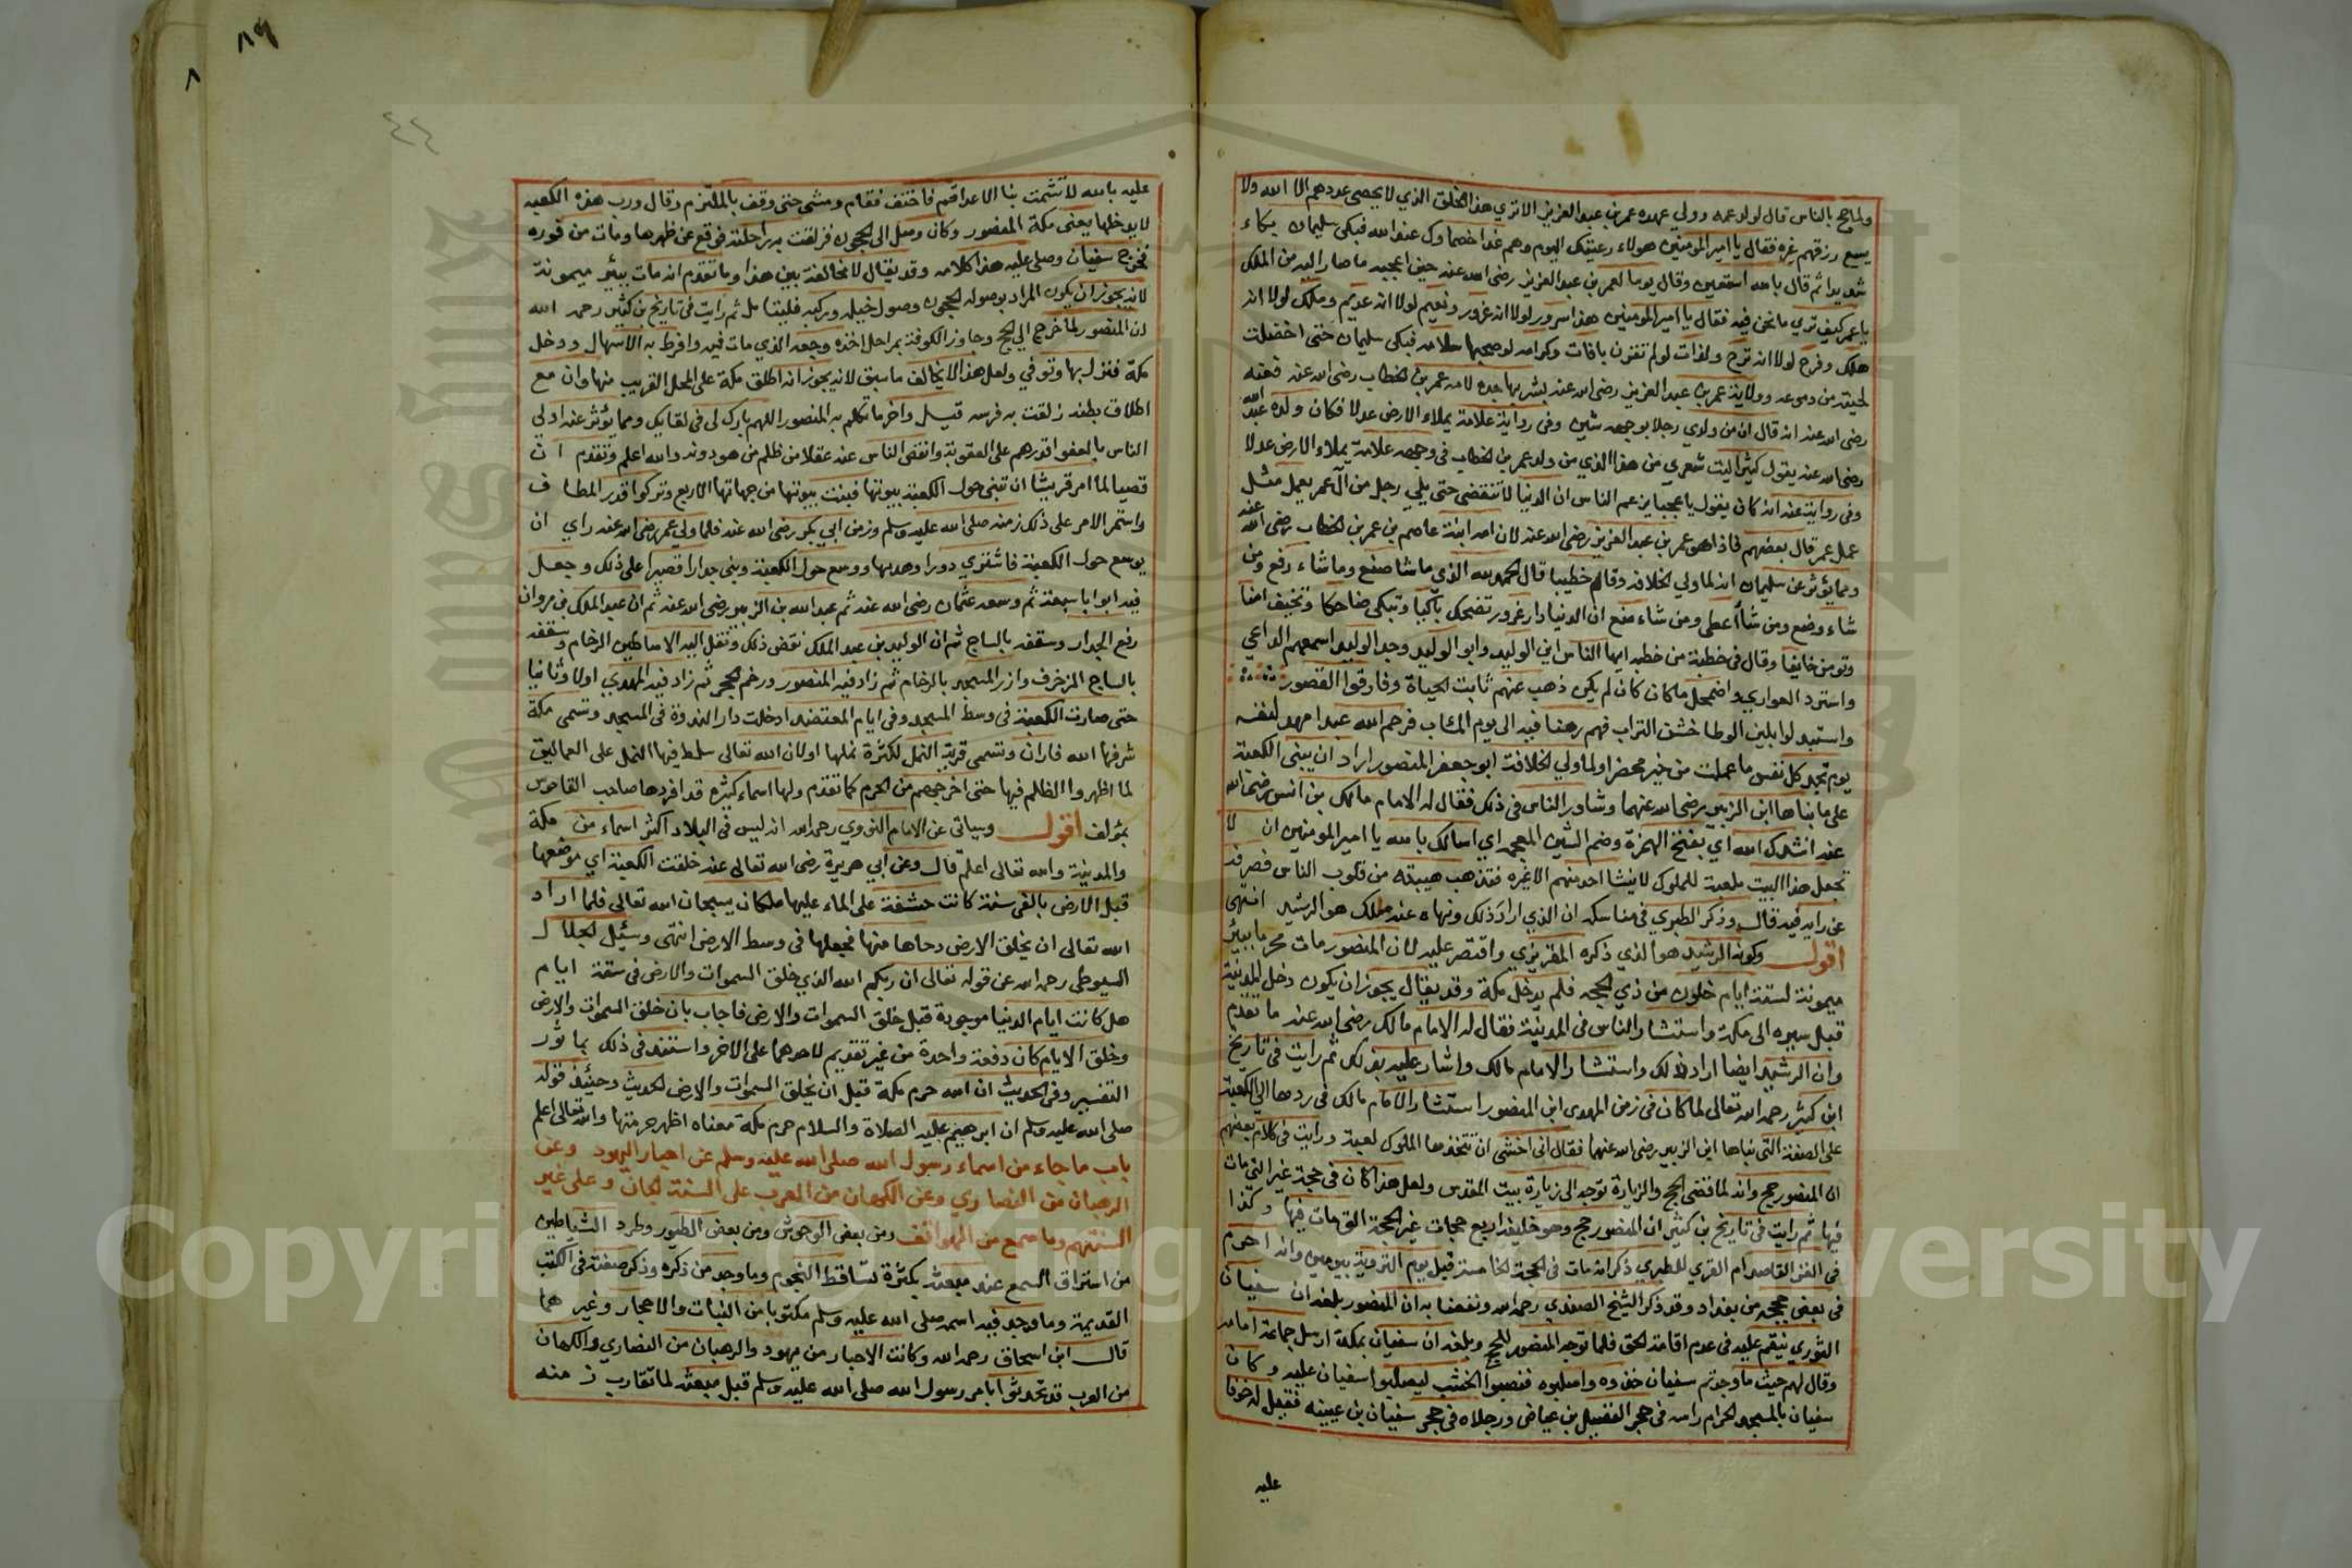 ولما حج بالناس قال لولد عمه وولي عهده عمر بن عبد العزيز الا تري هذا الخلق الذي لا يحصى عددهم الا الله ولا
يسع رزقهم غيره فقال يا امير المومنين هولاء رعيتك اليوم وهم غدا خصماوك عند الله فبكى سليمان بكاء
شديدا ثم قال بالله استعين وقال يوما لعمر بن عبد العزيز رضى الله عنه حين اعجبه ما صار اليه من الملك
يا عمر كيف تري ما نحن فيه فقال يا امير المومنين هذا سرور لولا انه غرور ونعيم لولا انه عديم وملك لولا انه
هلك وفرح لولا انه ترح ولذات لو لم تقترن بافات وكرامه لو صحبها سلامه فبكى سليمان حتى اخضلت
لحيته من دموعه وولاية عمر بن عبد العزيز رضى الله عنه بشر بها جده لامه عمر بن الخطاب رضى الله عنه فعنه
رضى الله عنه انه قال ان من ولدي رجلا بوجهه شين وفى رواية علامة يملاء الارض عدلا فكان ولده عبد الله
رضى الله عنه يقول كثيرا ليت شعري من هذا الذي من ولد عمر بن الخطاب فى وجهه علامة يملاء الارض عدلا
وفى رواية عنه انه كان يقول يا عجبا يزعم الناس ان الدنيا لا تنقضى حتى يلي رجل من آل عمر يعمل مثل
عمل عمر قال بعضهم فاذا هو عمر بن عبد العزيز رضى الله عنه لان امه ابنة عاصم بن عمر بن الخطاب رضى الله عنه
ومما يؤثر عن سليمان انه لما ولي الخلافة وقام خطيبا قال الحمد لله الذي ما شا صنع وما شاء رفع ومن
شاء وضع ومن شأ اعطى ومن شاء منع ان الدنيا دار غرور تضحك باكيا وتبكى ضاحكا وتخيف امنا
وتومن خايفا وقال فى خطبة من خطبه ايها الناس اين الوليد وابو الوليد وجد الوليد اسمعهم الداعي
واسترد العواري واضمحل ما كان كان لم يكن ذهب عنهم ثابت الحياة وفارقوا القصور
واستبدلوا بلين الوطا خشن التراب فهم رهنا فيه الى يوم المئاب فرحم الله عبدا مهد لنفسه
يوم تجد كل نفس ما عملت من خير محضرا ولما ولي الخلافة ابو جعفر المنصور اراد ان يبنى الكعبة
على ما بناها ابن الزبير رضى الله عنهما وشاور الناس فى ذلك فقال له الامام مالك بن انس رضى الله
عنه انشدك الله اي بفتح الهمزة وضم الشين المعجمه اي اسالك بالله يا امير المومنين ان لا
تجعل هذا البيت ملعبة للملوك لا يشا احد منهم الا غيره فتذهب هيبته من قلوب الناس فصرفه
عن رايه فيه قال وذكر الطبري فى مناسكه ان الذي اراد ذلك ونهاه عنه مالك هو الرشيد انتهى
اقول وكونه الرشيد هو الذي ذكره المقريزي واقتصر عليه لان المنصور مات محرما ببئر
ميمونة لستة ايام خلون من ذي الحجه فلم يدخل مكة وقد يقال يجوز ان يكون دخل المدينة
قبل سيره الى مكة واستشار الناس فى المدينة فقال له الامام مالك رضى الله عنه ما تقدم
وان الرشيد ايضا اراد ذلك واستشار الامام مالك واشار عليه بذلك ثم رايت فى تاريخ
ابن كثير رحمه الله تعالى لما كان فى زمن المهدى ابن المنصور استشار الامام مالك فى ردها الي الكعبة
على الصفة التى بناها ابن الزبير رضى الله عنهما فقال انى اخشى ان تتخذها الملوك لعبة ورايت فى كلام بعضهم
ان المنصور حج وانه لما قضى الحج والزيارة توجه الى زيارة بيت المقدس ولعل هذا كان فى حجة غير التي مات
فيها ثم رايت فى تاريخ بن كثير ان المنصور حج وهو خليفه اربع حجات غير الحجة التى مات فيها وكذا
فى القرى القاصد ام القري للطبري ذكر انه مات فى الحجة الخامسة قبل يوم التروية بيومين وانه احرم
فى بعض حججه من بغداد وقد ذكر الشيخ الصفدي رحمه الله ونفعنا به ان المنصور بلغه ان سفيان
الثوري ينقم عليه فى عدم اقامة الحق فلما توجه المنصور للحج وبلغه ان سفيان بمكة ارسل جماعة امامه
وقال لهم حيث ما وجدتم سفيان خذوه واصلبوه فنصبوا الخشب ليصلبوا سفيان عليه وكان
سفيان بالمسجد الحرام راسه فى حجر الفضيل بن عياض ورجلاه فى حجر سفيان بن عيينه فقيل له خوفا
عليه
٨٩
٨
٤٤
عليه بالله لا تشمت بنا الاعدا قم فاختف فقام ومشى حتى وقف بالملتزم وقال ورب هذه الكعبه
لا يدخلها يعنى مكة المنصور وكان وصل الى الحجون فزلقت به راحلته فوقع عن ظهرها ومات من فوره
فخرج سفيان وصلى عليه هذا كلامه وقد يقال لا مخالفة بين هذا وما تقدم انه مات ببئر ميمونة
لانه يجوز ان يكون المراد بوصوله الحجون وصول خيله وركبه فليتامل ثم رايت فى تاريخ بن كثير رحمه الله
ان المنصور لما خرج الي الحج وجاوز الكوفة بمراحل اخذه وجعه الذي مات فيه وافرط به الاسهال ودخل
مكة فنزل بها وتوفي ولعل هذا لا يخالف ما سبق لانه يجوز انه اطلق مكة على المحل القريب منها وان مع
اطلاق بطنه زلقت به فرسه قيل واخر ما تكلم به المنصور اللهم بارك لى فى لقايك ومما يؤثر عنه اولي
الناس بالعفو اقدرهم على العقوبة وانقص الناس عند عقلا من ظلم من هو دونه والله اعلم وتقدم ان
قصيا لما امر قريشا ان تبنى حول الكعبة بيوتها فبنت بيوتها من جهاتها الاربع وتركوا قدر المطاف
واستمر الامر على ذلك زمنه صلى الله عليه وسلم وزمن ابي بكر رضى الله عنه فلما ولي عمر رضى الله عنه راي ان
يوسع حول الكعبة فاشتري دورا وهدمها ووسع حول الكعبة وبنى جدارا قصيرا على ذلك وجعل
فيه ابوابا سبعة ثم وسعه عثمان رضى الله عنه ثم عبد الله بن الزبير رضى الله عنه ثم ان عبد الملك بن مروان
رفع الجدار وسقفه بالساج ثم ان الوليد بن عبد الملك نقض ذلك ونقل اليه الاساطين الرخام وسقفه
بالساج المزخرف وازر المسجد بالرخام ثم زاد فيه المنصور ورخم الحجر ثم زاد فيه المهدي اولا وثانيا
حتى صارت الكعبة فى وسط المسجد وفى ايام المعتضد ادخلت دار الندوة فى المسجد وتسمى مكة
شرفها الله فاران وتسمى قرية النمل لكثرة نملها او لان الله تعالى سلط فيها النمل على العماليق
لما اظهروا الظلم فيها حتى اخرجهم من الحرم كما تقدم ولها اسماء كثيره قد افردها صاحب القاموس
بمؤلف اقول وسياتى عن الامام النووي رحمه الله انه ليس فى البلاد اكثر اسماء من مكة
والمدينة والله تعالى اعلم قال وعن ابي هريرة رضى الله تعالى عنه خلقت الكعبة اي موضعها
قبل الارض بالفى سنة كانت حشفة على الماء عليها ملكان يسبحان الله تعالى فلما اراد
الله تعالى ان يخلق الارض دحاها منها فجعلها فى وسط الارض انتهى وسئيل الجلال
السيوطى رحمه الله عن قوله تعالى ان ربكم الله الذي خلق السموات والارض فى ستة ايام
هل كانت ايام الدنيا موجودة قبل خلق السموات والارض فاجاب بان خلق السموات والارض
وخلق الايام كان دفعة واحدة من غير تقديم لاحدهما على الاخر واستند فى ذلك بماثور
التفسير وفى الحديث ان الله حرم مكة قبل ان يخلق السموات والارض الحديث وحينئذ قوله
صلى الله عليه وسلم ان ابرهيم عليه الصلاة والسلام حرم مكة معناه اظهر حرمتها والله تعالى اعلم
باب ما جاء من اسماء رسول الله صلى الله عليه وسلم عن احبار اليهود وعن
الرهبان من النصاري وعن الكهان من العرب على السنة الجان وعلى غير
السنتهم وما سمع من الهواتف ومن بعض الوحوش ومن بعض الطيور وطرد الشياطين
من استراق السمع عند مبعثه بكثرة تساقط النجوم وما وجد من ذكره وذكر صفته فى الكتب
القديمة وما وجد فيه اسمه صلى الله عليه وسلم مكتوبا من النبات والاحجار وغيرهما
قال ابن اسحاق رحمه الله وكانت الاحبار من يهود والرهبان من النصاري والكهان
من العرب قد تحدثوا بامر رسول الله صلى الله عليه وسلم قبل مبعثه لما تقارب زمنه